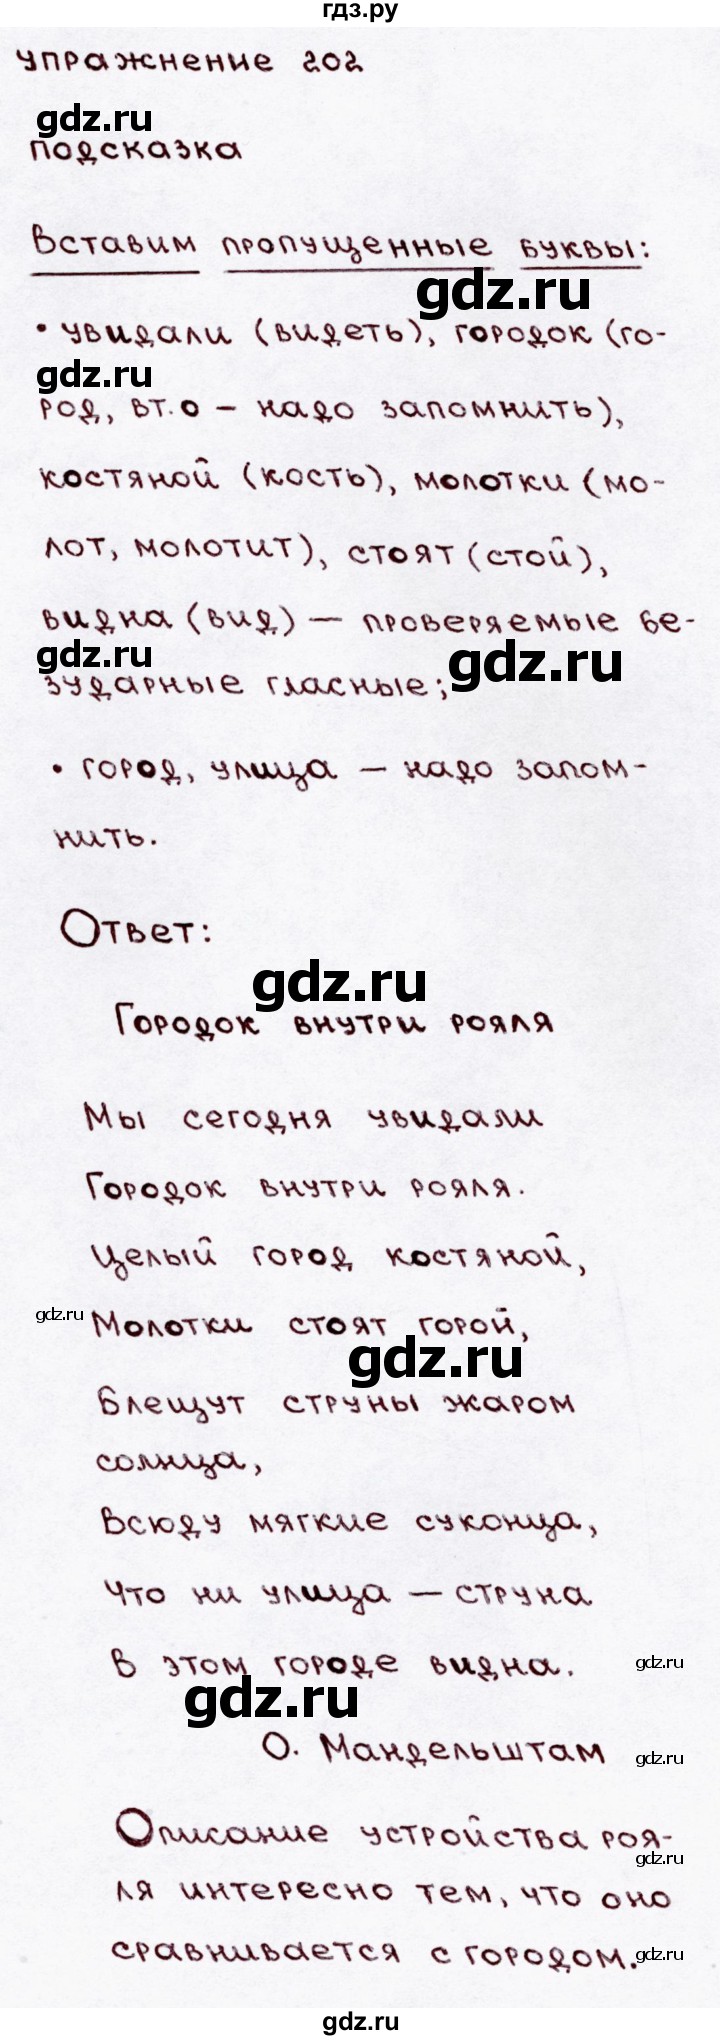 гдз.ру
упражнение 202
gdz.ru
подсказка
Вставим пропущенные буквы:
gdz.ru
• увидали (видеть), городок (го-
gdz.ru
род, вт. о – надо запомнить),
костяной (кость), молотки (мо-
лот, молотит), стоят (стой),
видна (вид) – проверяемые бе-
gdz.ru
gdz.ru
зударные гласные;
• город, улица – надо запом-
нить.
Ответ:
gdz.ru
Городок внутри рояля
Мы сегодня увидали
Городок внутри рояля.
Целый город костяной,
gdz.ru
Молотки стоят горой,
gdz.ru
Блещут струны жаром
солнца,
Всюду мягкие суконца,
Что ни улица – струна
В этом городе видна.
gdz.ru
gdz.ru
О. Мандельштам
gdz.ru
Описание устройства роя-
gdz.ru
ля интересно тем, что оно
сравнивается с городом.
gdz.ru
gdz.ru